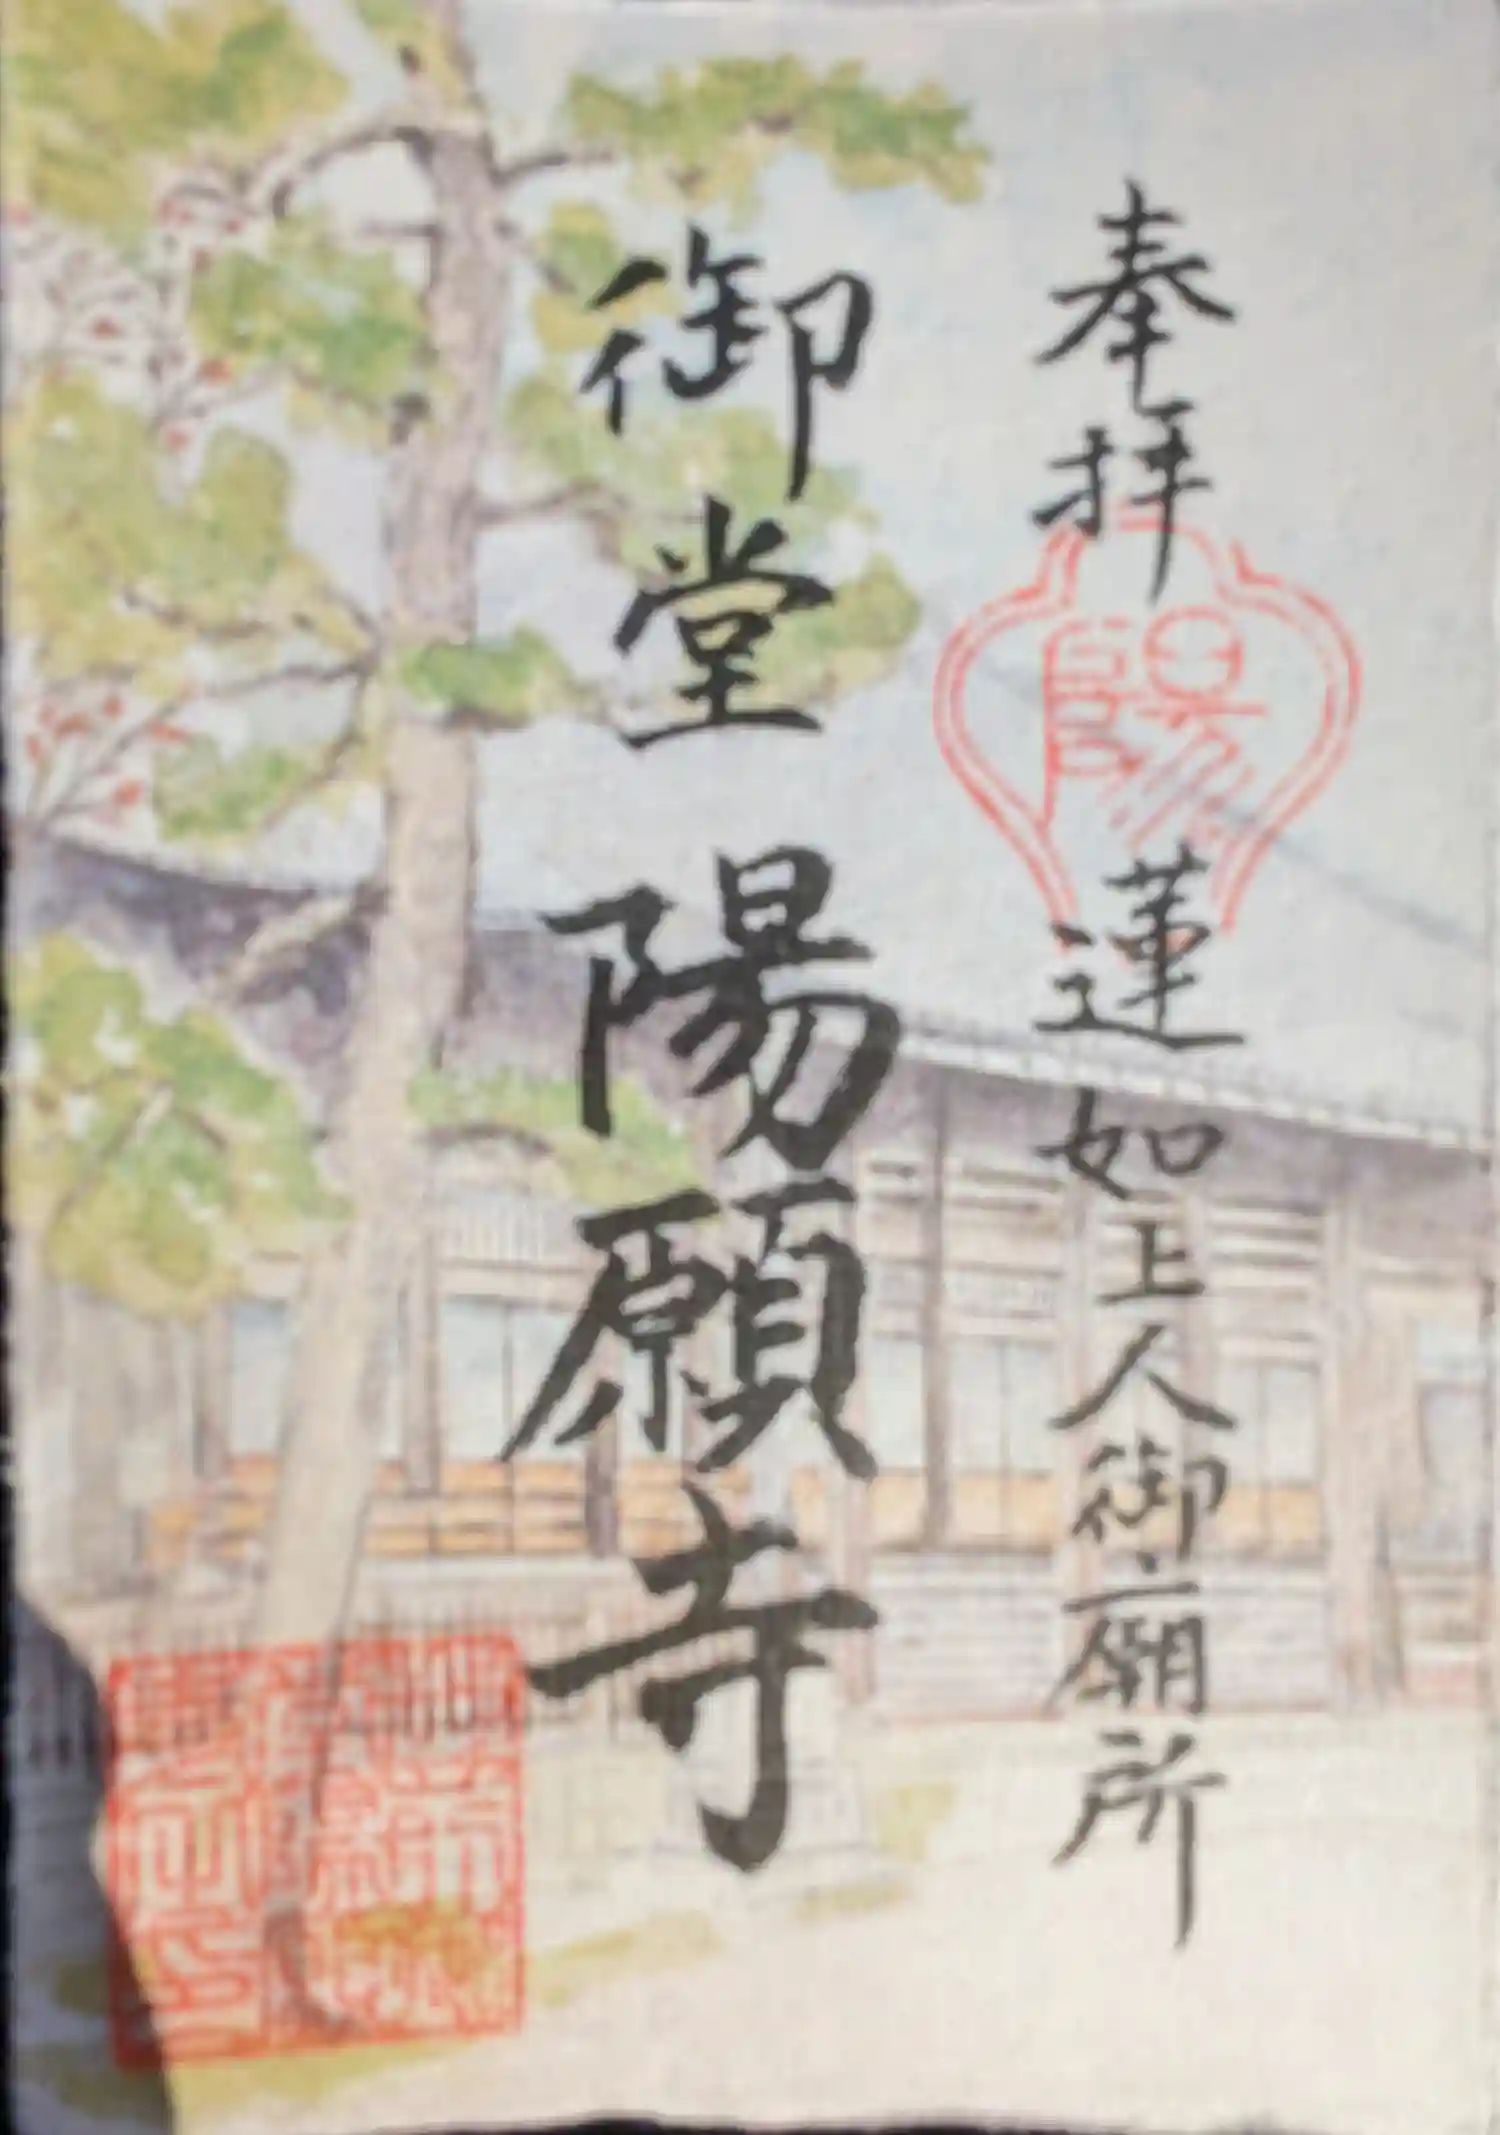 奉拝
蓮如上人御廟所
御堂 陽願寺
陽